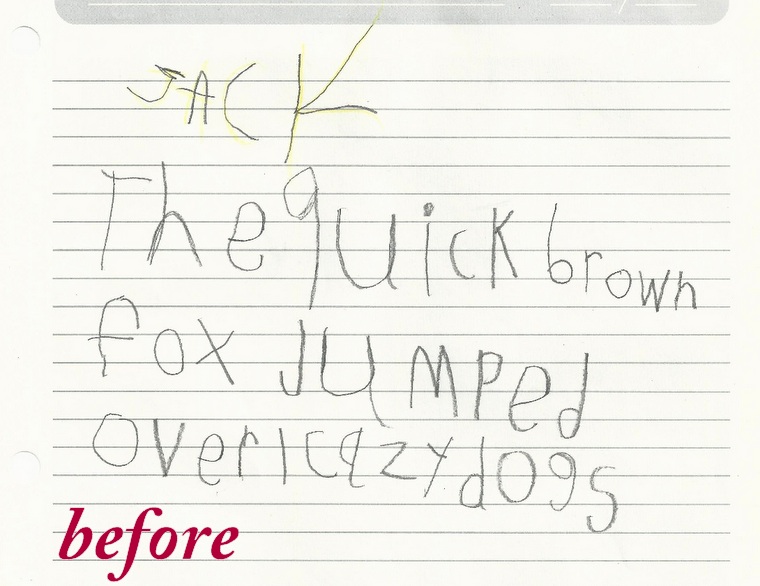 JACK
The quick brown
fox JuMPed
over lcazy dogs
before